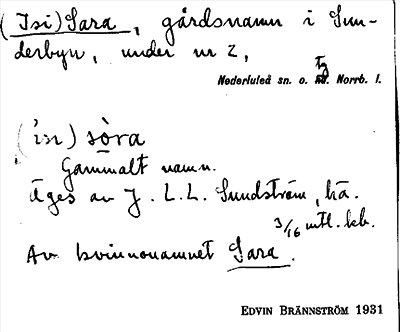 (Isi)Sara, gårdsnamn i Sun-
derbyn, under nr 2,
Nederluleå sn. o. tg Norrb. l.
(ı̇sı) sòra
Gammalt namn.
Äges av J. L. L. Sundström, hä.
3/16 mtl. kb.
Av kvinnonamnet Sara.
EDVIN BRÄNNSTRÖM 1931